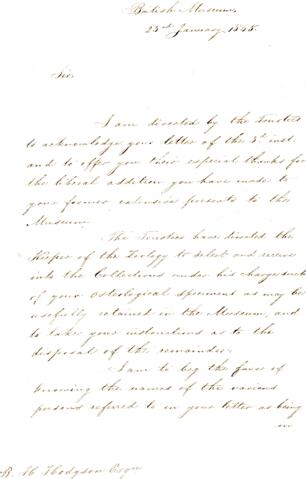 British Museum,
25th January 1845.
Sir,
I am directed by the Trustees
to acknowledge your letter of the 3d inst.
and to offer you their especial thanks for
the liberal addition you have made to
your former extensive presents to the
Museum.
The Trustees have directed the
Keeper of the Zoology to select and receive
into the Collections under his charge such
of your Osteological specimens as may be
usefully retained in the Museum, and
to take your instructions as to the
disposal of the remainder.
I am to beg the favor of
knowing the names of the various
persons referred to in your letter as being
in
B. H. Hodgson Esqre